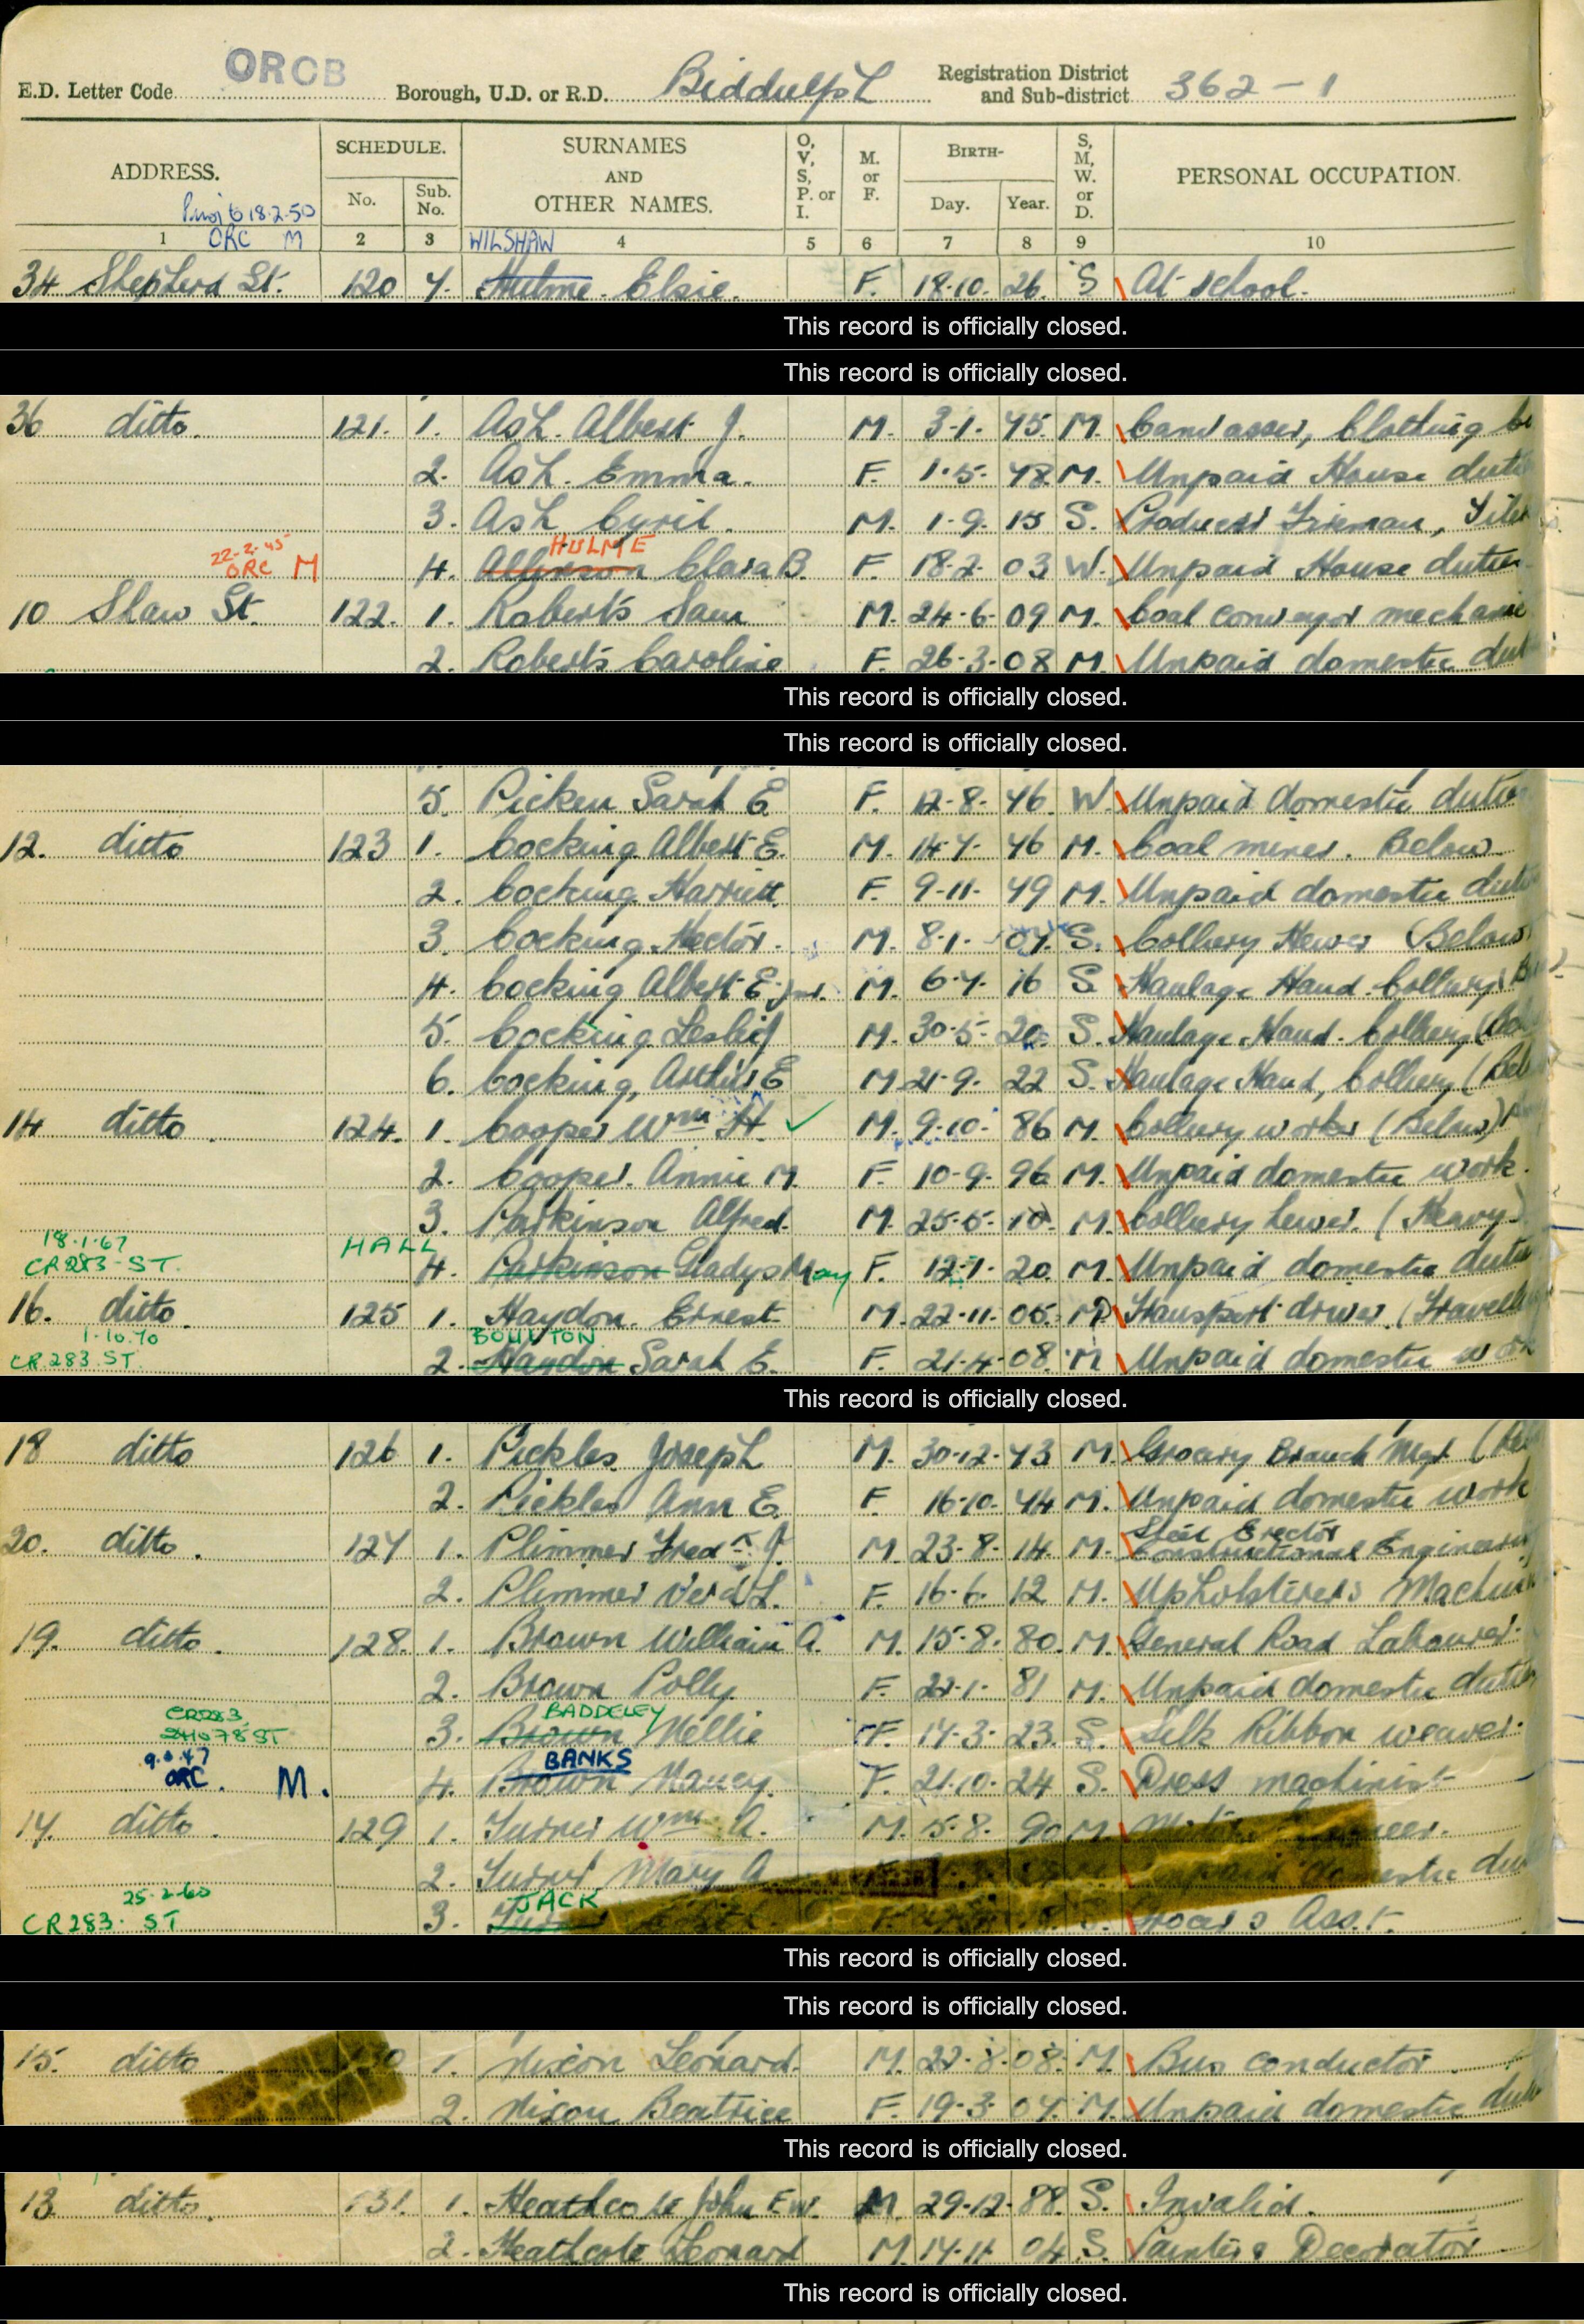 ORCB
E.D. Letter Code Borough, U.D. or R.D. Biddulph Registration District and Sub-district 362-1
ADDRESS. SCHEDULE. No. Sub. No. SURNAMES AND OTHER NAMES. O, V, S, P. or I. M. or F. BIRTH- Day. Year. S, M, W. or D. PERSONAL OCCUPATION.
18.2.50
1 ORC M 2 3 WILSHAW 4 5 6 7 8 9 10
34 Shepherd St. 120 7. Hulme Elsie. F. 18.10. 26. S At school.
This record is officially closed.
This record is officially closed.
36 ditto. 121. 1. Ash. Albert J. M. 3.1. 75. M. Canvasser, Clothing
2. Ash. Emma. F. 1.5. 78 M. Unpaid House
3. Ash Cyril. M. 1.9. 15 S. Fireman,
HULME
22-2-45 ORC M 4. Clara B. F. 18.2. 03 W. Unpaid House duties
10 Shaw St. 122. 1. Roberts Sam M. 24.6. 09 M. Coal conveyor mechanic
2. Roberts Caroline F. 26.3. 08 M. Unpaid domestic
This record is officially closed.
This record is officially closed.
5. Picken Sarah E. F. 12.8. 76. W. Unpaid domestic duties
12. ditto 123 1. Cocking Albert E. M. 14.7. 76 M. Coal miner. Below
2. Cocking Harriett F. 9.11. 79 M. Unpaid domestic
3. Cocking Hector. M. 8.1. 07. S. Colliery Hewer (Below)
4. Cocking Albert E. jnr. M. 6.7. 16 S. Haulage Hand. Colliery
5. Cocking Leslie M. 30.5. 20. S. Haulage Hand. Colliery
6. Cocking, Arthur E M 21.9. 22 S. Haulage Hand, Colliery
14 ditto. 124. 1. Cooper Wm H. ✓ M. 9.10. 86 M. Colliery worker (Below)
2. Cooper. Annie M. F. 10.9. 96 M. Unpaid domestic work.
3. Parkinson Alfred. M. 25.5. 10. M. Colliery hewer. (Heavy)
18.1.67 HALL
CR283-ST. 4. Parkinson Gladys May F. 12.1. 20. M. Unpaid domestic duties
16. ditto. 125 1. Haydon. Ernest M. 22.11. 05. M Transport driver.
1.10.70 BOULTON
CR.283.ST. 2. Haydon Sarah E. F. 21.4. 08. M Unpaid domestic work
This record is officially closed.
18 ditto 126 1. Pickles Joseph M. 30.12. 73. M. Grocery Branch Mgr
2. Pickles Ann E. F. 16.10. 74 M. Unpaid domestic work
Steel Erector
20. ditto. 127 1. Plimmer Fredk J. M. 23.8. 14. M. Constructional Engineering
2. Plimmer Vera L. F. 16.6. 12 M. Upholsterers
19. ditto. 128. 1. Brown William A. M. 15.8. 80. M. General Road Labourer.
2. Brown Polly. F. 22.1. 81 M. Unpaid domestic duties
CR283 BADDELEY
ST 3. Brown Nellie F. 17.3. 23. S. Silk Ribbon weaver.
BANKS
ORC. M. 4. Brown Nancy. F. 21.10. 24 S. Dress machinist
17. ditto. 129 1. Turner Wm A. M. 5.8. 90 M.
2. Turner Mary A
25.2.60 JACK
CR283. ST 3. Asst.
This record is officially closed.
This record is officially closed.
15. ditto. 1. Nixon Leonard. M. 22.8. 08. M. Bus conductor
2. Nixon Beatrice F. 19.3. 07. M. Unpaid domestic
This record is officially closed.
13 ditto. 131. 1. Heathcote John Ew. M 29.12. 88. S. Invalid.
2. Heathcote Leonard M. 17.11 04 S. Painter & Decorator
This record is officially closed.